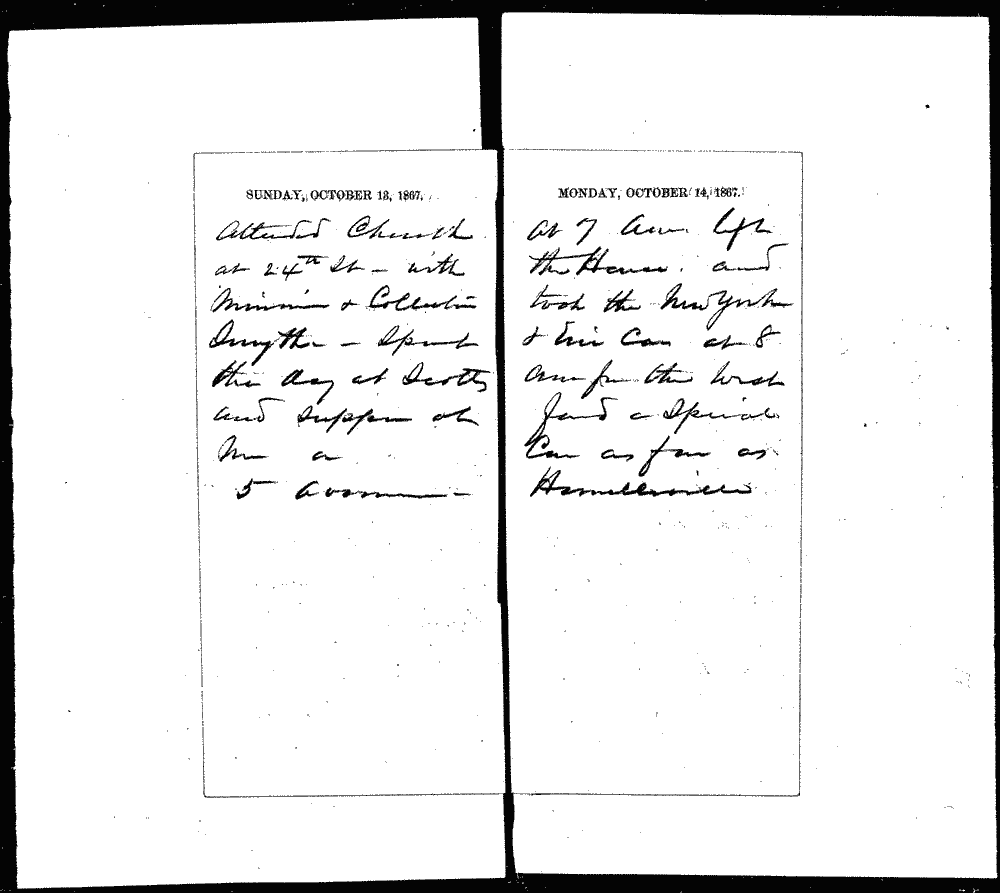 SUNDAY, OCTOBER 13, 1867.
Attended Church
at 24th St - with
Minnie & Collector
Smythe - Spent
the day at Scotts
and supper at
5 Avenue -
MONDAY, OCTOBER 14, 1867.
At 7 am left
the House. and
took the New York
& Erie Cars at 8
am for the West
found a Special
Car as far as
Hornellsville